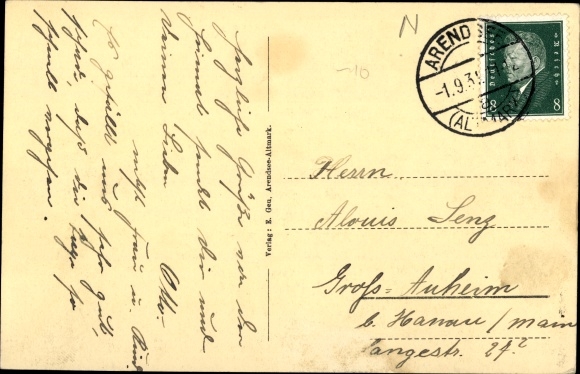 N
-10
ARENDSEE
-1.9.31
(ALTMARK)
Deutsches Reich
8 8
Herrn
Alouis Lenz
Gross-Auheim
b. Hanau / Main
Langestr. 27²
Verlag: E. Gen, Arendsee-Altmark.
Herzliche Grüße von der
sendet dir und
deinen Lieben Otto
nebst Frau u. Kind
Es gefällt uns sehr gut,
schade, daß die Tage so
schnell vergehen.